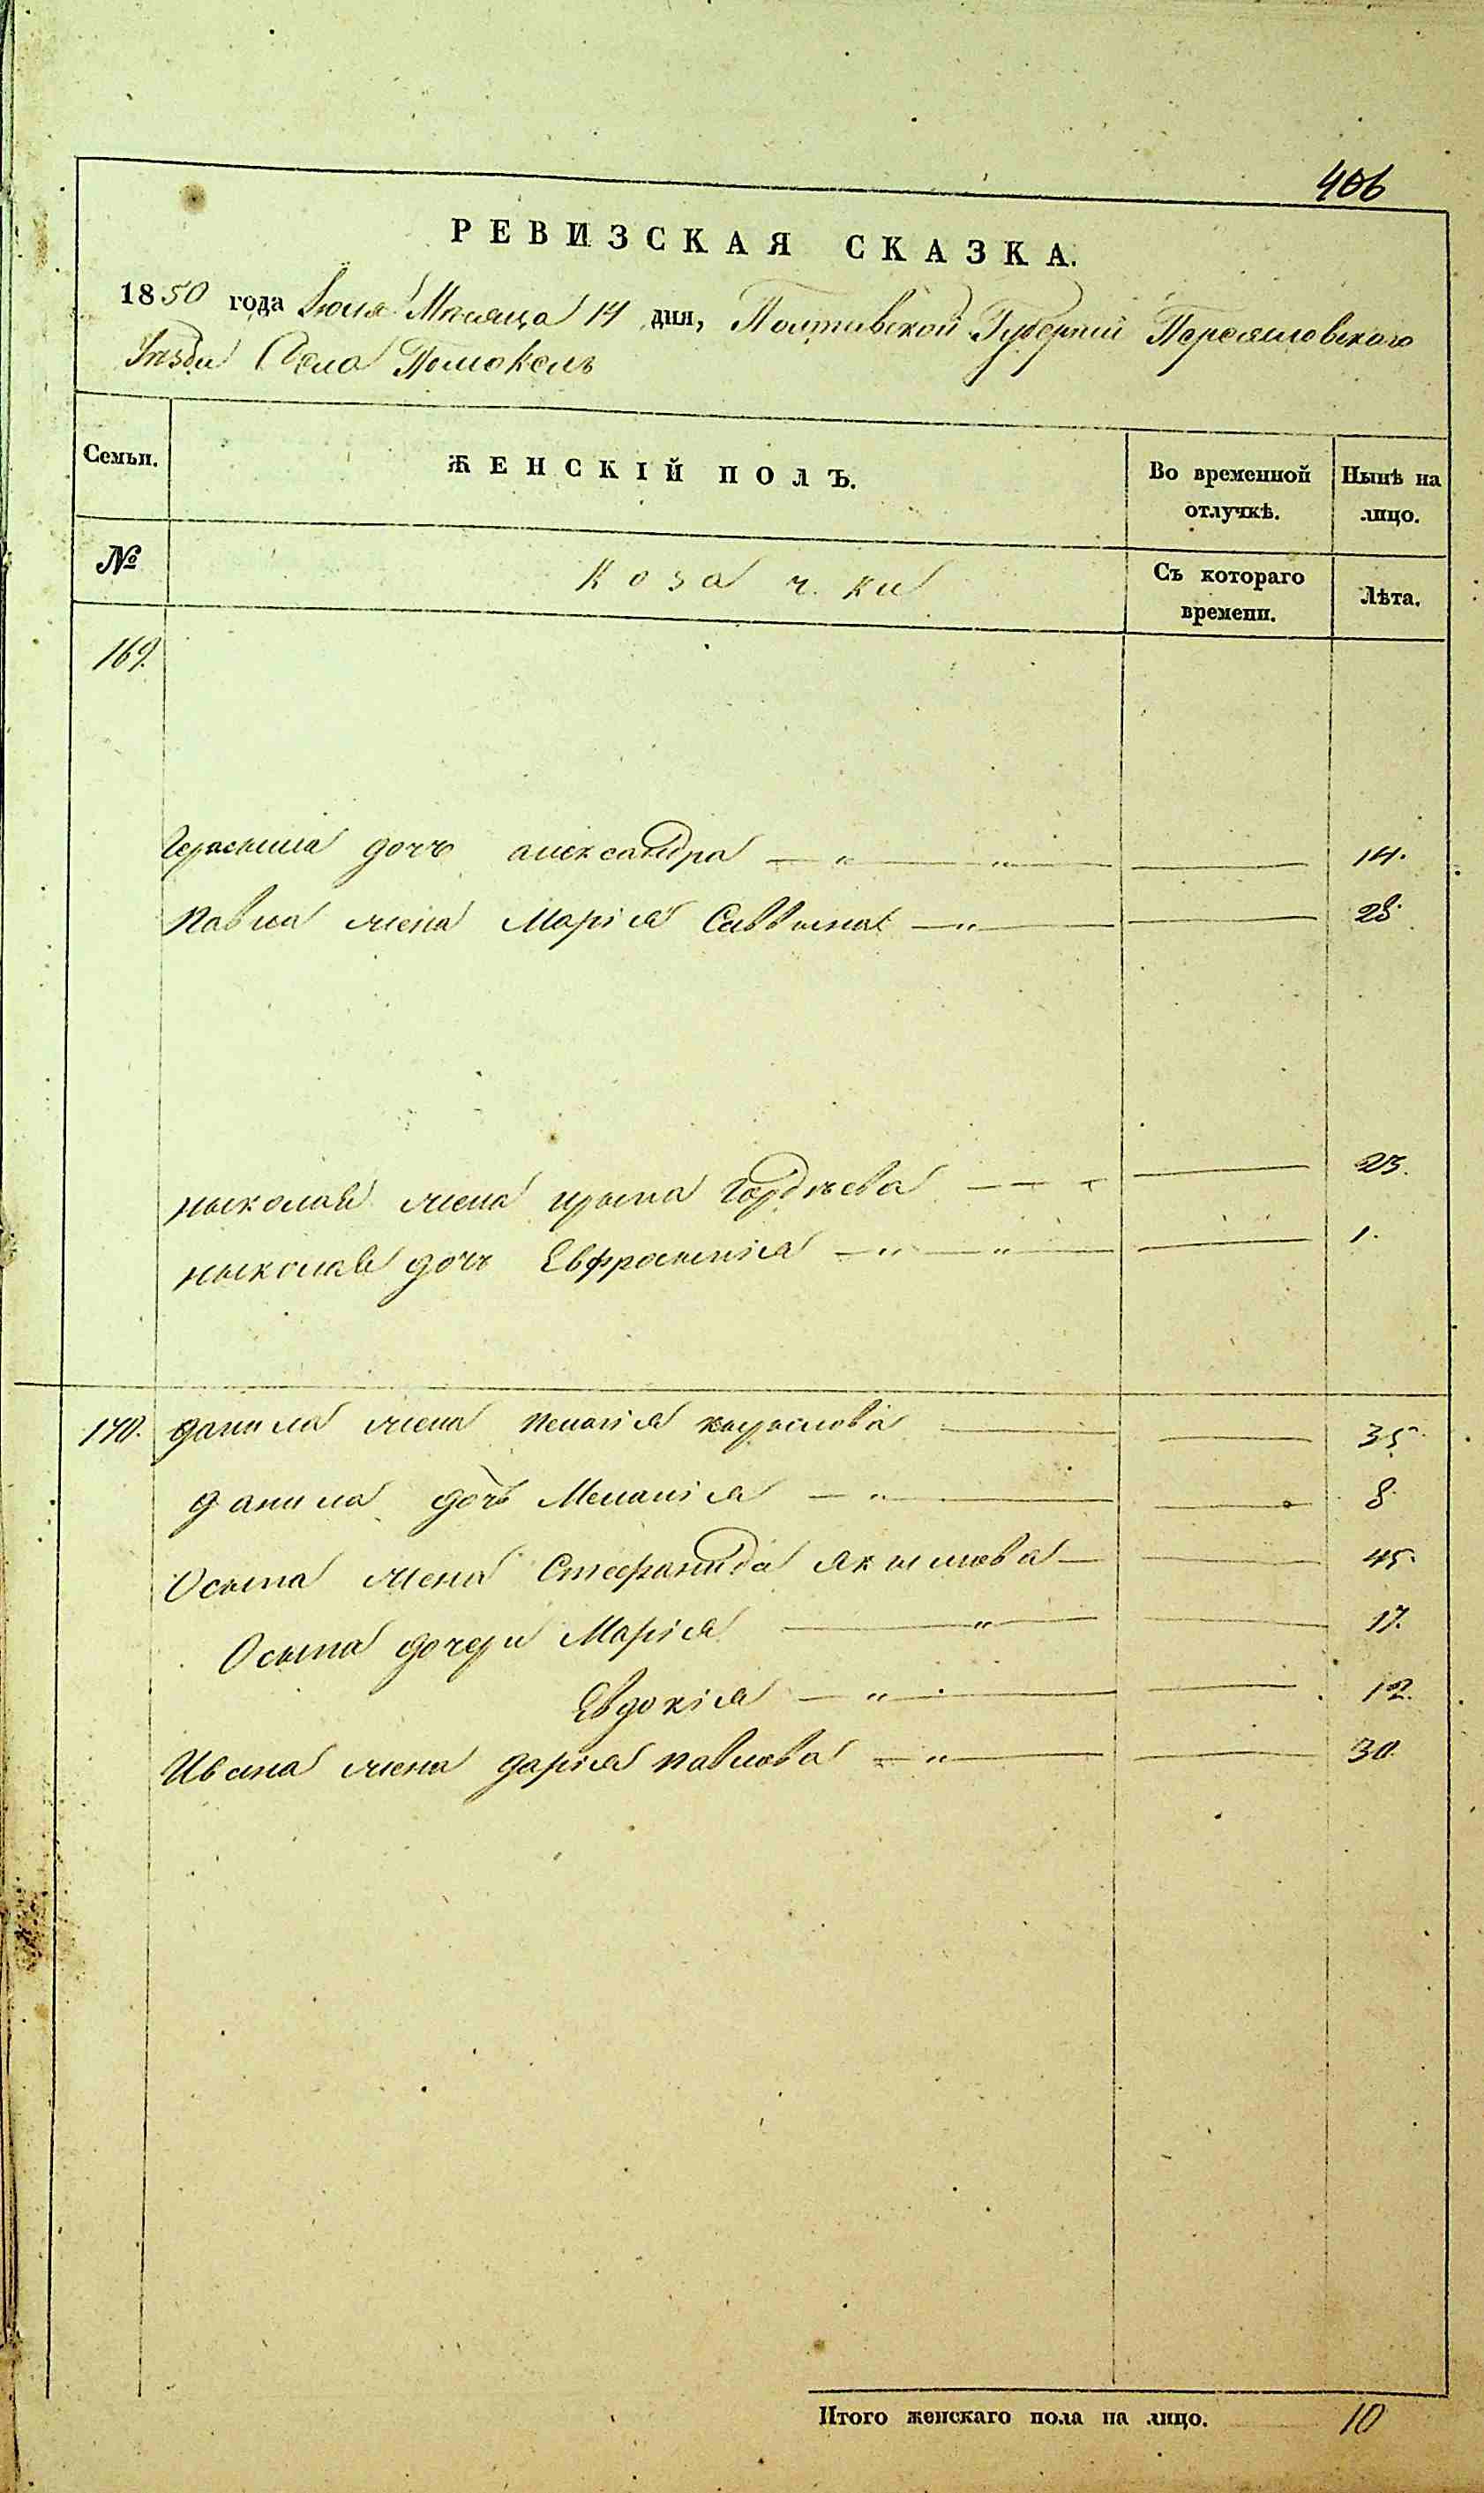 406
РЕВИЗСКАЯ СКАЗКА.
1850 года Іюля Мѣсяца 14 дня, Полтавской Губерніи Переяславского
Уѣзда Села Помокель
Семьи.
ЖЕНСКІЙ ПОЛЪ.
Во временной отлучкѣ.
Нынѣ на лицо.
№
Козачки
Съ котораго времени.
Лѣта.
169.
Герасыма дочь александра — „ — „ — 14.
Павла жена Марія Саввына — „ — 28.
ныколая жена ирына Гордѣева — 23.
ныколая дочь Евфросынія — „ — „ — 1.
170. данила жена пелагія — 35.
данила дочь Меланія — „ — 8
Осыпа жена Стефанида якымова — 45.
Осыпа дочери Марія — „ — 17.
Евдокія — „ — 12.
Ивана жена дарія павлова — „ — 30.
Итого женскаго пола на лицо. 10